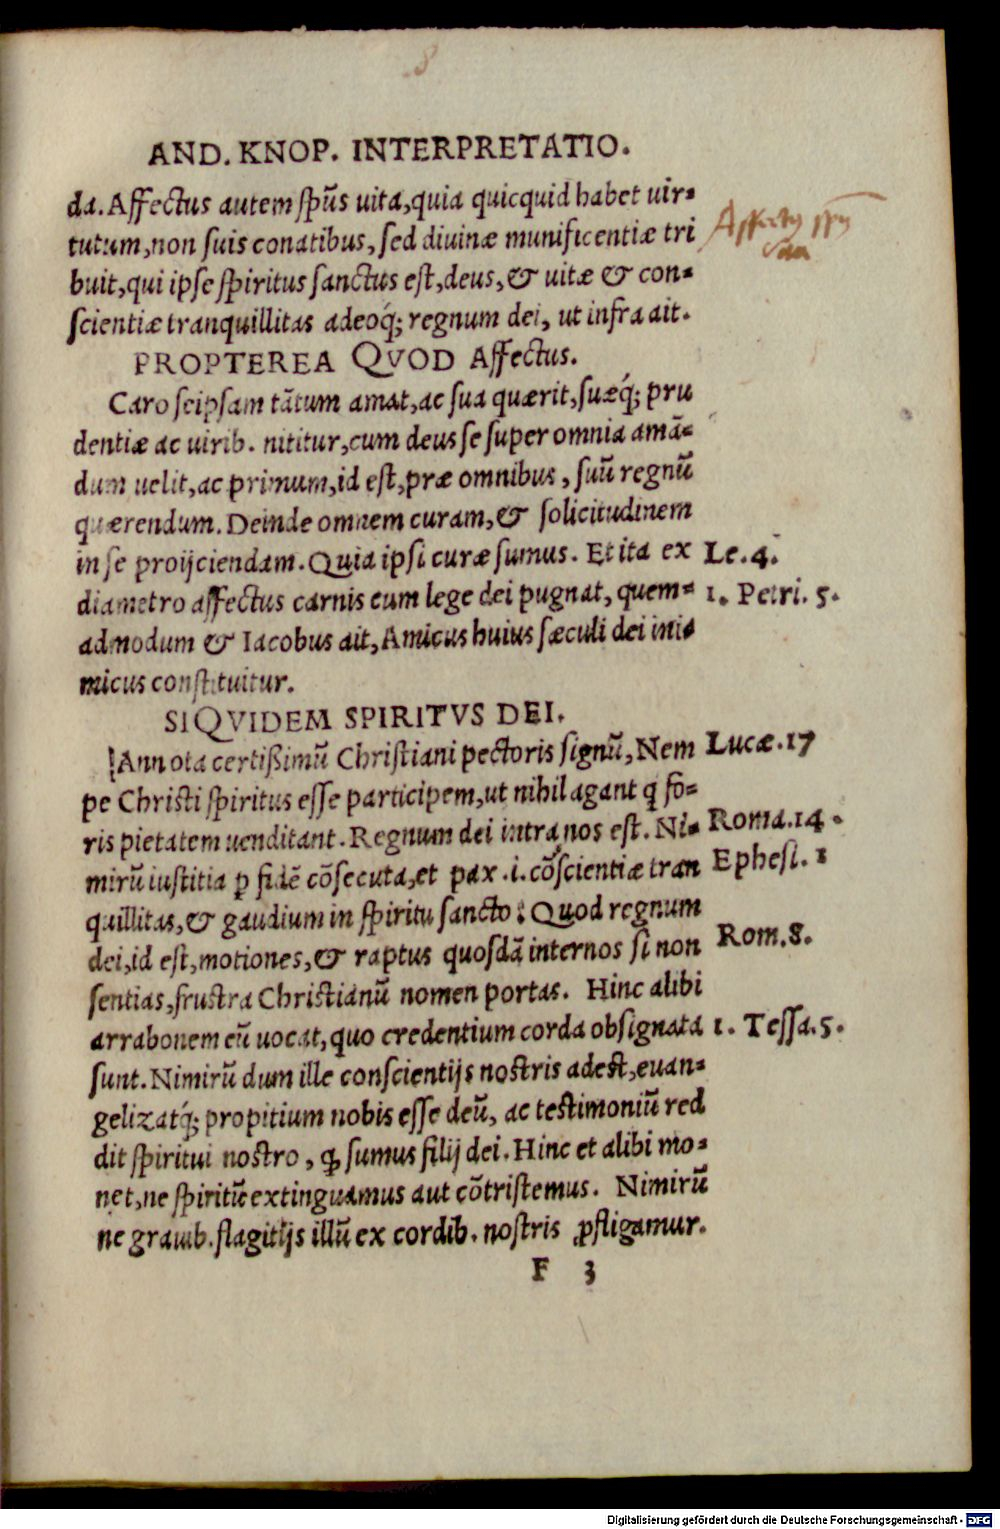 8
AND. KNOP. INTERPRETATIO.
da. Affectus autem spũs uita, quia quicquid habet uir=
tutum, non suis conatibus, sed diuinæ munificentiæ tri
buit, qui ipse spiritus sanctus est, deus, & uitæ & con=
scientiæ tranquillitas adeoq́; regnum dei, ut infra ait.
PROPTEREA QVOD Affectus.
Caro seipsam tãtum amat, ac sua quærit, suæq́; pru
dentiæ ac uirib. nititur, cum deus se super omnia amã=
dum uelit, ac primum, id est, præ omnibus, suũ regnũ
quærendum. Deinde omnem curam, & solicitudinem
in se proijciendam. Quia ipsi curæ sumus. Et ita ex
diametro affectus carnis cum lege dei pugnat, quem=
admodum & Iacobus ait, Amicus huius sæculi dei ini=
micus constituitur.
SIQVIDEM SPIRITVS DEI.
Annota certißimũ Christiani pectoris signũ, Nem
pe Christi spiritus esse participem, ut nihil agant q fo=
ris pietatem uenditant. Regnum dei intra nos est. Ni=
mirũ iustitia p fidẽ cõsecuta, et pax .i. cõscientiæ tran
quillitas, & gaudium in spiritu sancto: Quod regnum
dei, id est, motiones, & raptus quosdã internos si non
sentias, frustra Christianũ nomen portas. Hinc alibi
arrabonem eũ uocat, quo credentium corda obsignata
sunt. Nimirũ dum ille conscientijs nostris adest, euan=
gelizatq́; propitium nobis esse deũ, ac testimoniũ red
dit spiritui nostro, ꝙ sumus filij dei. Hinc et alibi mo=
net, ne spiritũ extinguamus aut cõtristemus. Nimirũ
ne grauib. flagitijs illũ ex cordib. nostris ꝓfligamur.
F 3
Affectus spũs
uita
Le. 4.
1. Petri. 5.
Lucæ. 17
Roma. 14.
Ephesi. 1
Rom. 8.
1. Tessa. 5.
Digitalisierung gefördert durch die Deutsche Forschungsgemeinschaft - DFG